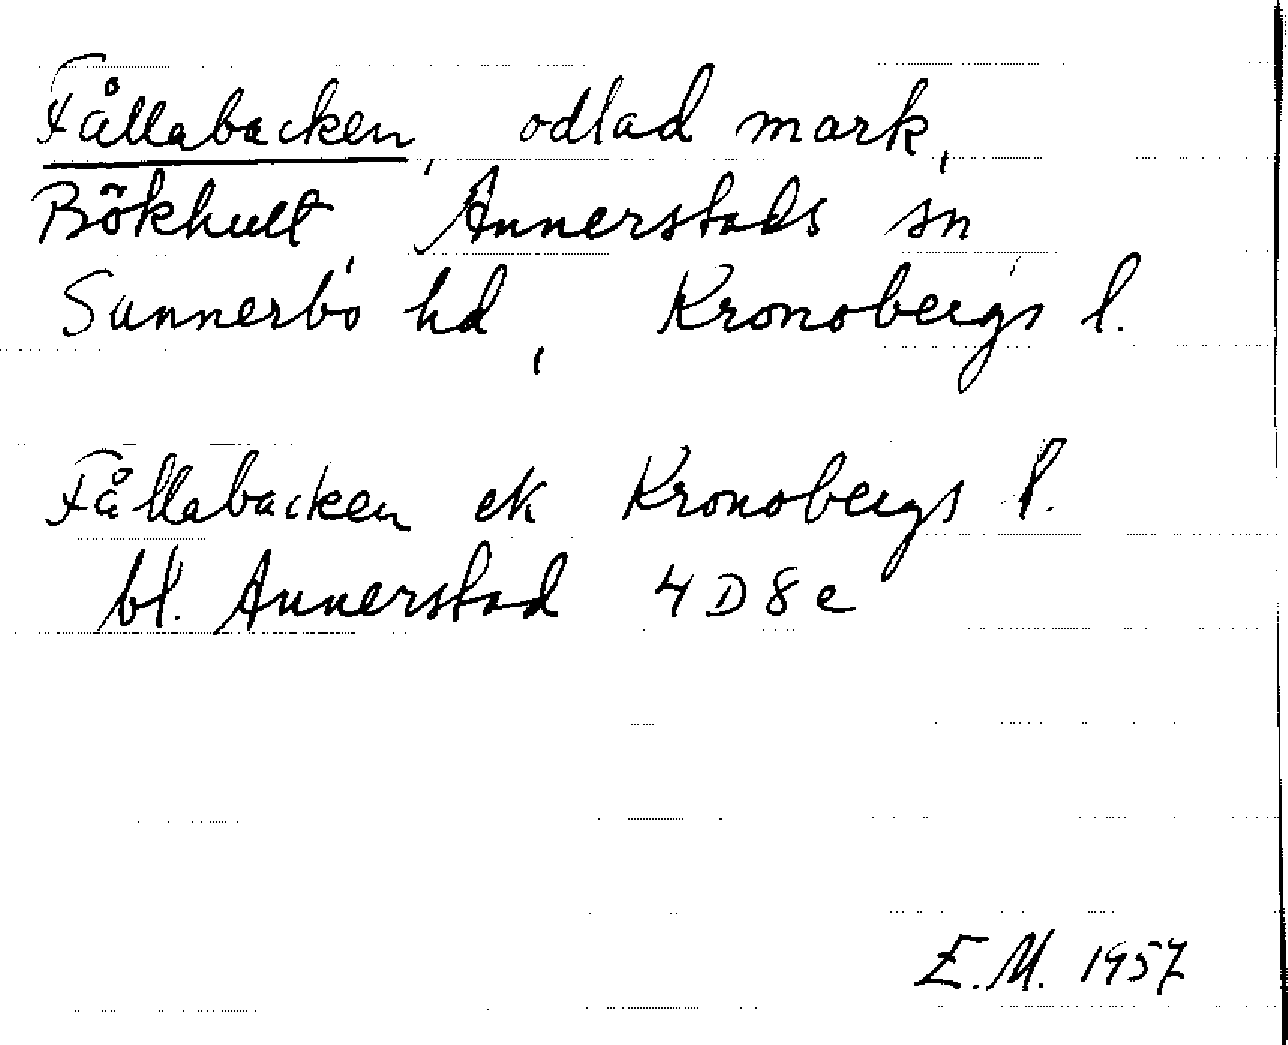 Fållabacken, odlad mark,
Bökhult, Annerstads sn
Sunnerbo hd, Kronobergs l.
Fållabacken ek Kronobergs l.
bl. Annerstad 4D8e
E.M. 1957